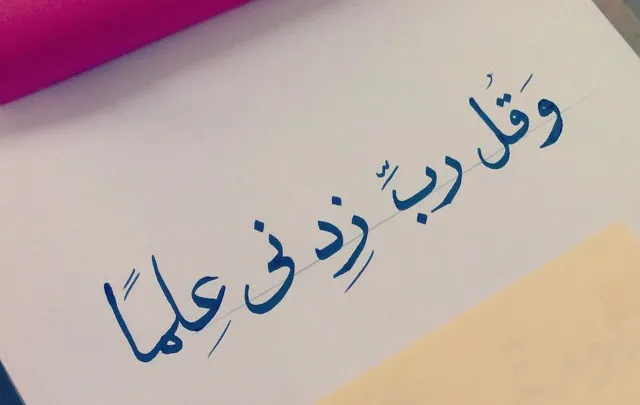 وَقُل ربِّ زِدنى عِلمًا